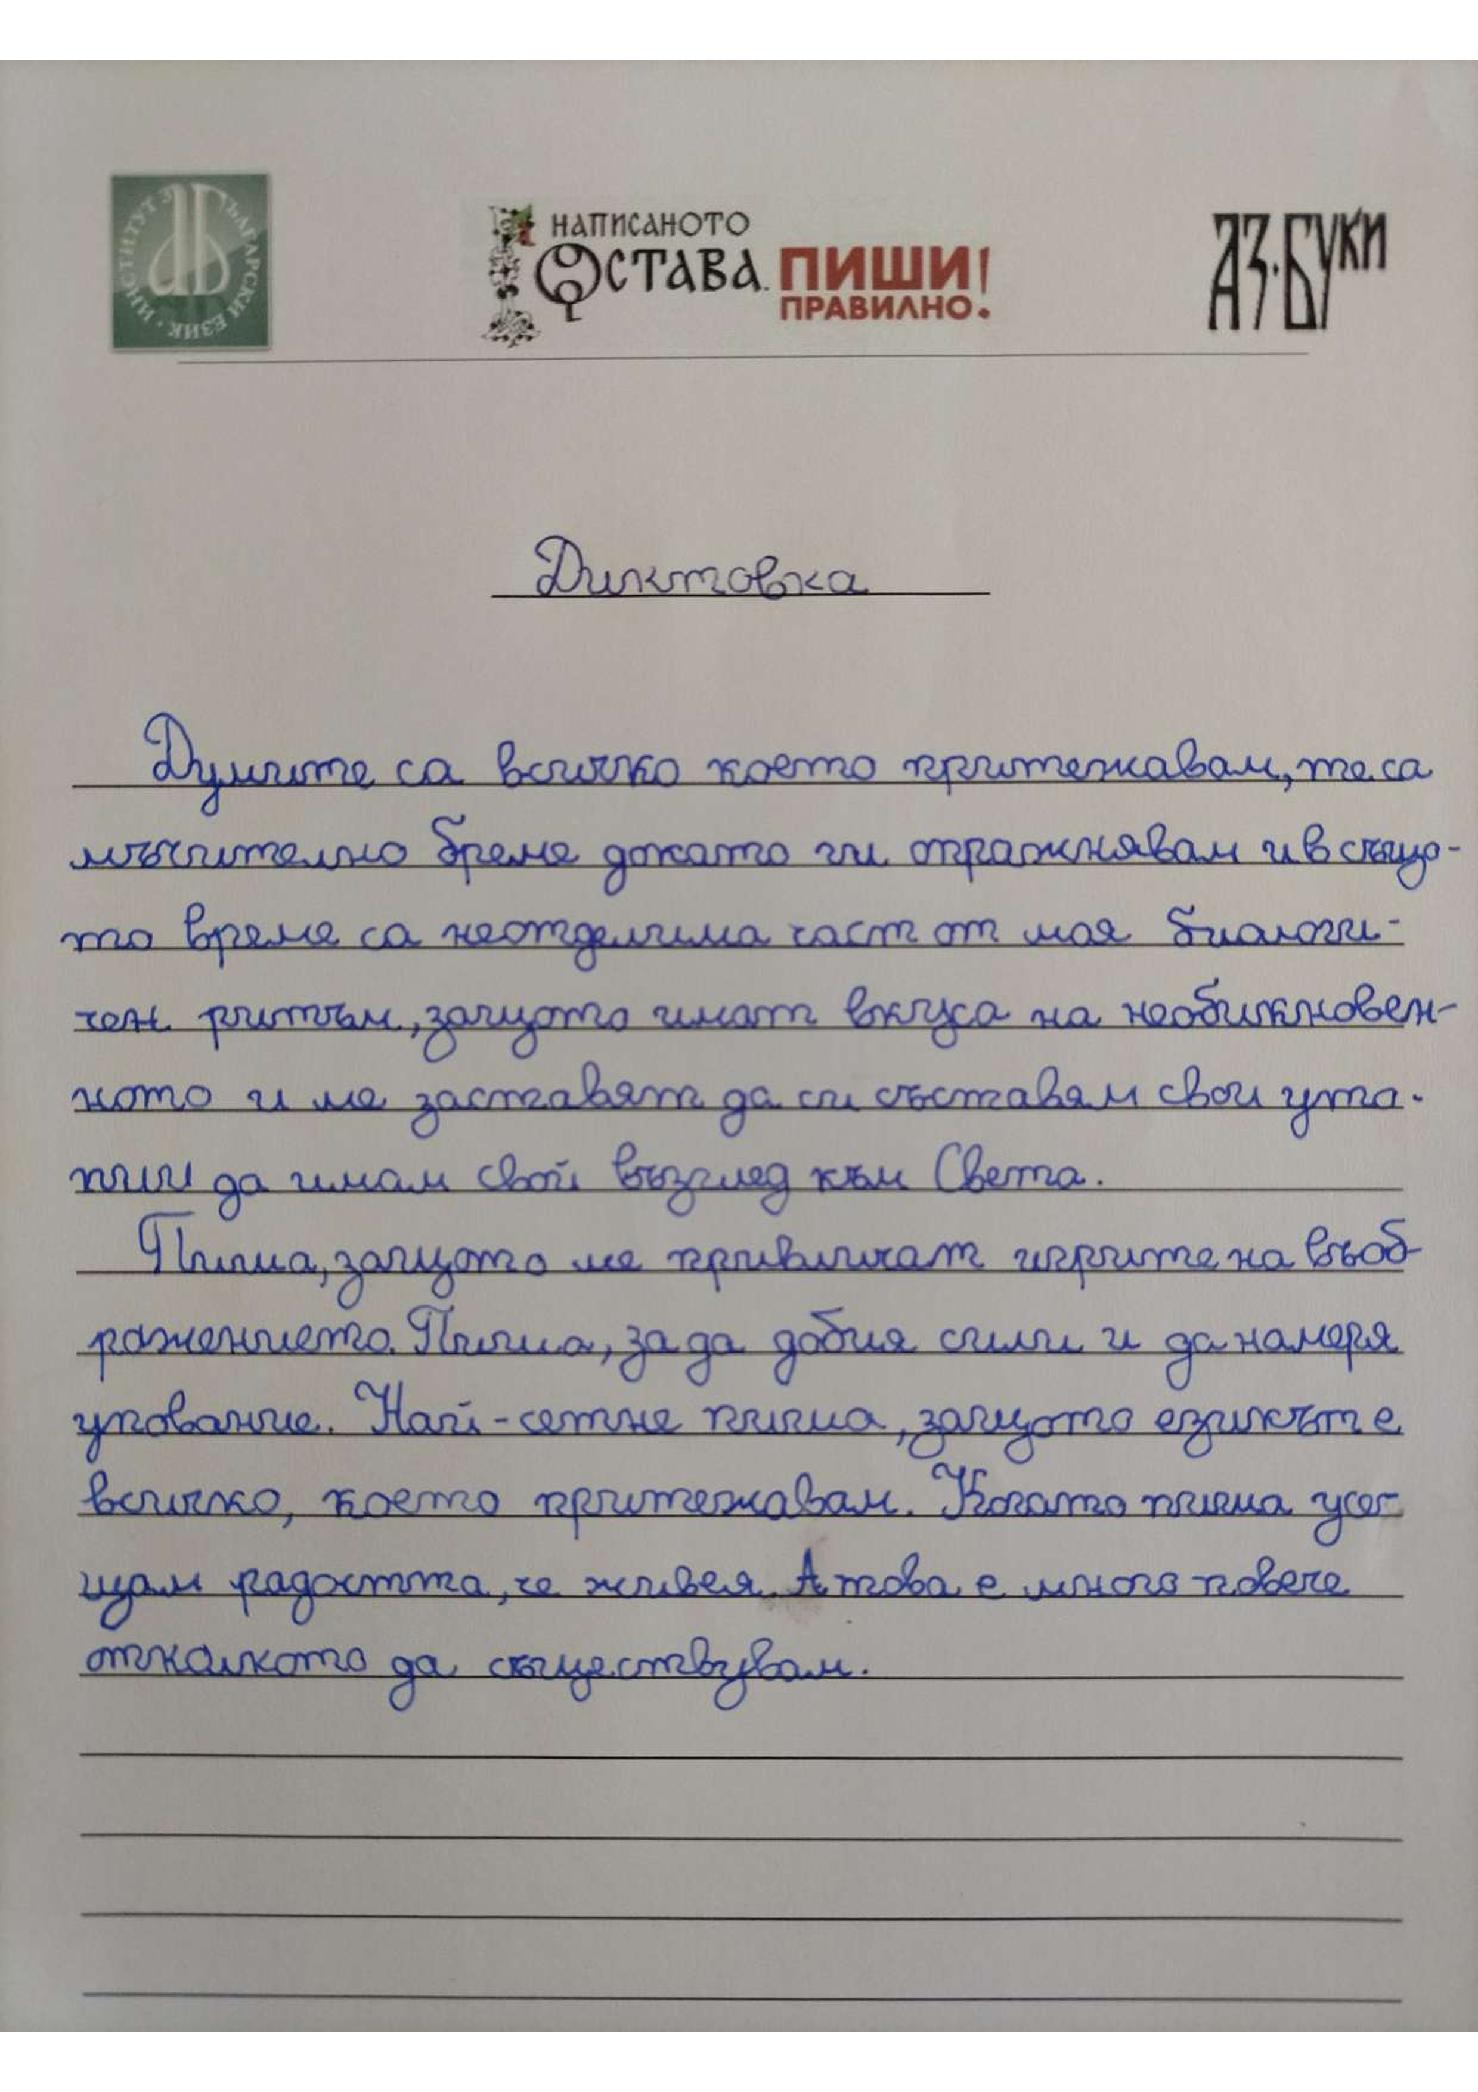 ИНСТИТУТ ЗА БЪЛГАРСКИ ЕЗИК
НАПИСАНОТО
ОСТАВА. ПИШИ!
ПРАВИЛНО.
АЗ·БУКИ
Диктовка
Думите са всичко което притежавам, те са
мъчително бреме докато ги отражнявам и в също-
то време са неотделима част от моя биологи-
чен ритъм, защото имат вкуса на необикновен-
ното и ме заставят да си съставям свои уто-
пии да имам свой възглед към Света.
Пиша, защото ме привличат игрите на въоб-
ражението. Пиша, за да добия сили и да намеря
упование. Най-сетне пиша, защото езикът е
всичко, което притежавам. Когато пиша усе-
щам радостта, че живея. А това е много повече
отколкото да съществувам.